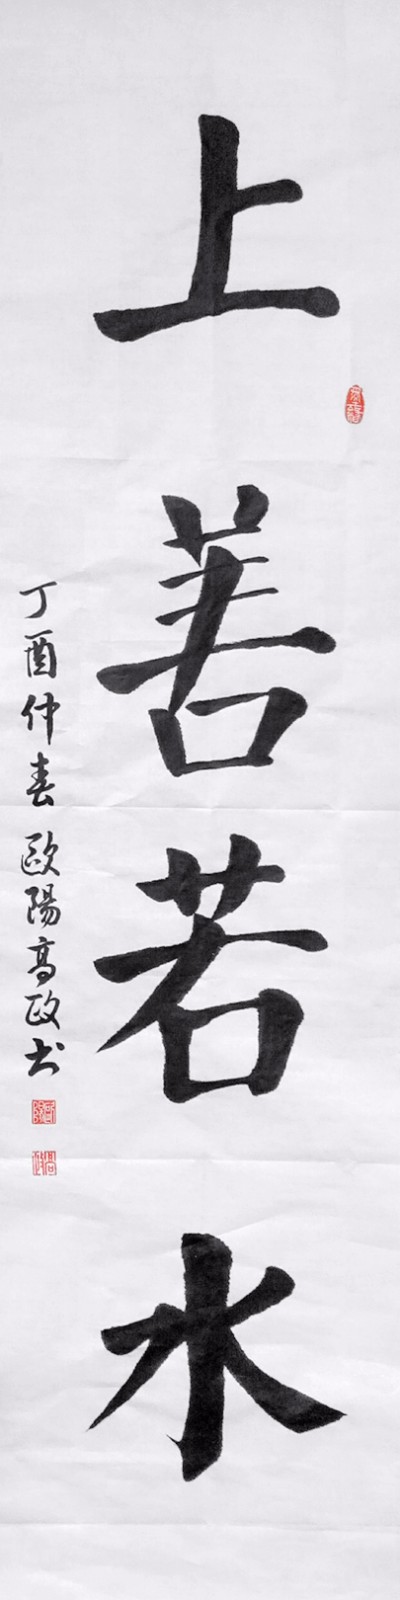 上善若水
丁酉仲春 歐陽高政书